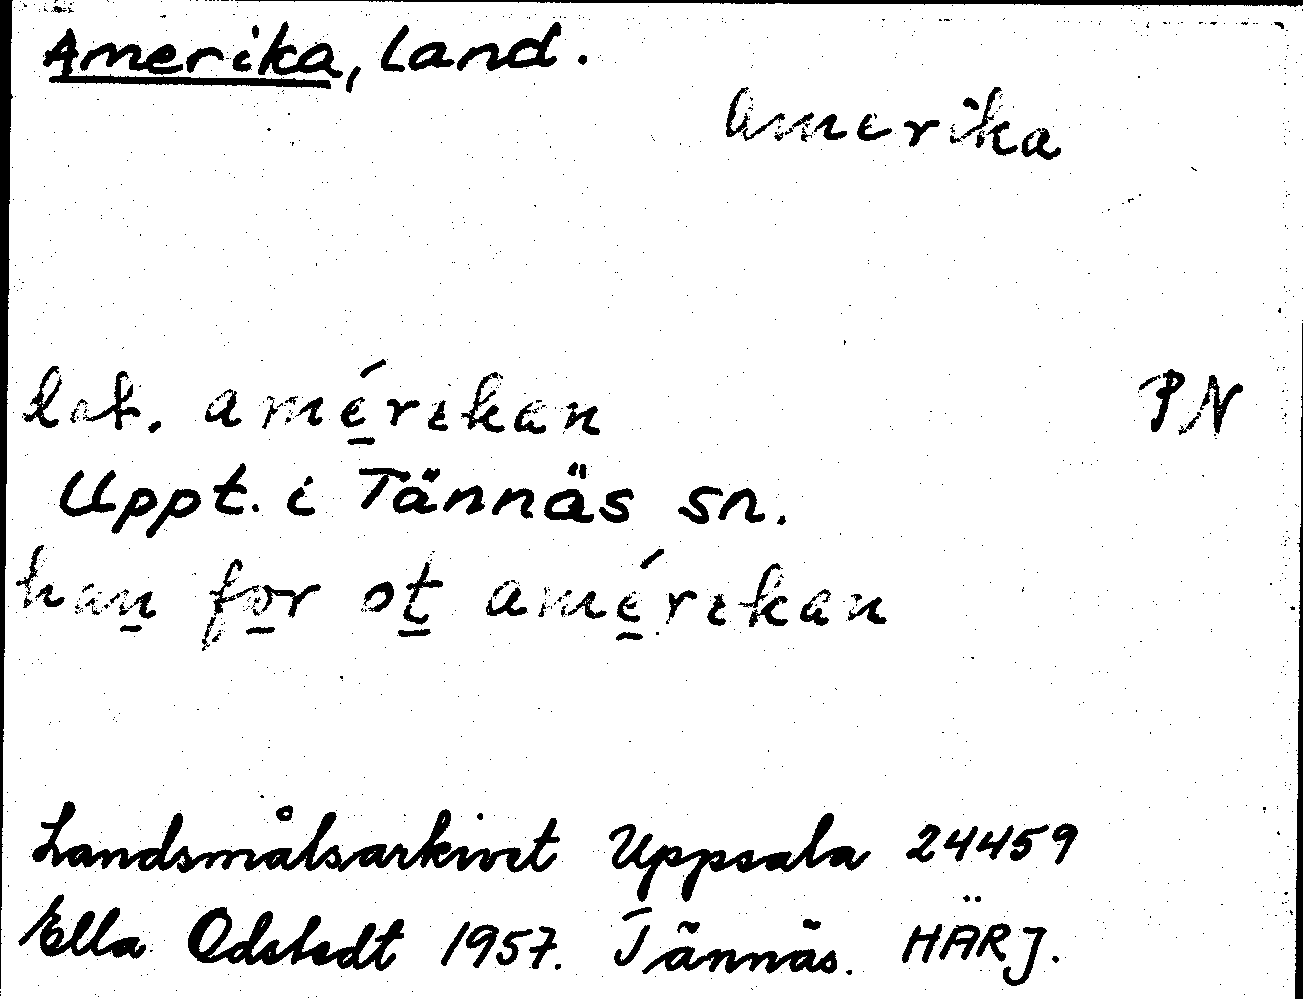 Amerika, land.
Amerika
dat. amérikan
PN
Uppt. i Tännäs sn.
han for ot amérikan
Landsmålsarkivet Uppsala 24459
Ella Odstedt 1957. Tännäs. HÄRJ.